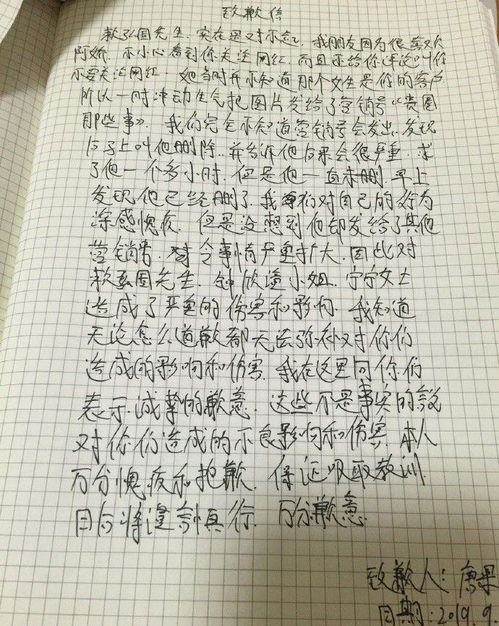 致歉信
赖弘国先生，实在是对不起，我朋友因为很喜欢
阿娇，不小心看到你关注网红，而且还给你评论叫你
不要关注网红，她当时并不知道那个女生是你的客户
所以一时冲动生气把图片发给了营销号《贵圈
那些事》，我们完全不知道营销号会发出，发现
后马上叫他删除，并告诉他后果会很严重，求
了他一个多小时，但是他一直未删，早上
发现他已经删了，我们对自己的行为
深感愧疚，但是没想到他却发给了其他
营销号，令事情严重扩大，因此对
赖弘国先生，钟欣潼小姐，宁宁女士
造成了严重的伤害和影响，我知道
无论怎么道歉都无法弥补对你们
造成的影响和伤害，我在这里向你们
表示诚挚的歉意，这些不是事实的说
对你们造成的不良影响和伤害，本人
万分愧疚和抱歉，保证吸取教训
日后将谨言慎行，万分歉意
致歉人：唐果
日期：2019.9